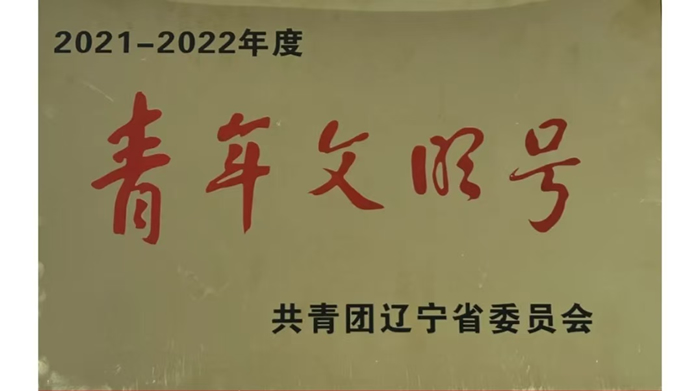 2021-2022年度
青年文明号
共青团辽宁省委员会